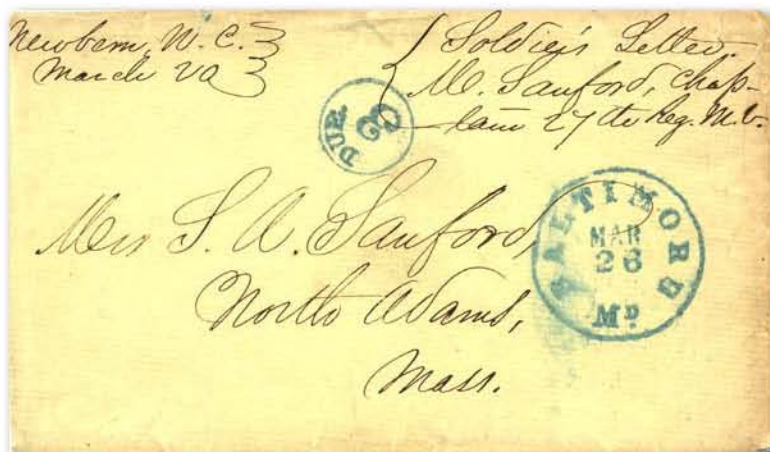 Newbern, N. C.
March 20
Soldier's Letter.
M. Sanford, Chap-
lain 27th Reg. M. V.
DUE. 3
BALTIMORE
MAR
26
Md
Mrs S. A. Sanford,
North Adams,
Mass.